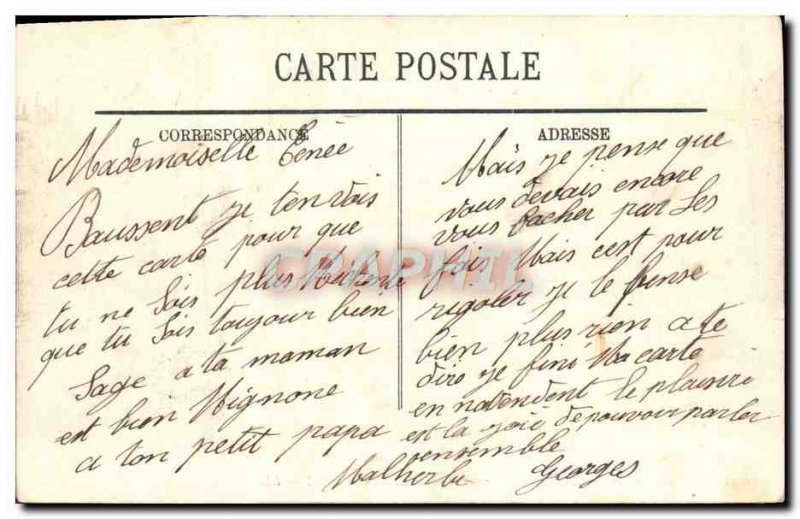 CARTE POSTALE
CORRESPONDANCE
Mademoiselle Cenée
Baussent je tenvois
cette carte pour que
tu ne sois plus
que tu sois toujour bien
sage a ta maman
est bien Mignone
a ton petit papa
Malherbe
ADRESSE
Mais je pense que
vous devais encore
vous facher par Les
fois Mais cest pour
rigoler je le pense
bien plus rien a te
dire je fini Ma carte
en natendent le plaisire
est la joie de pouvoir parler
ensemble
Georges
CRAPHIL